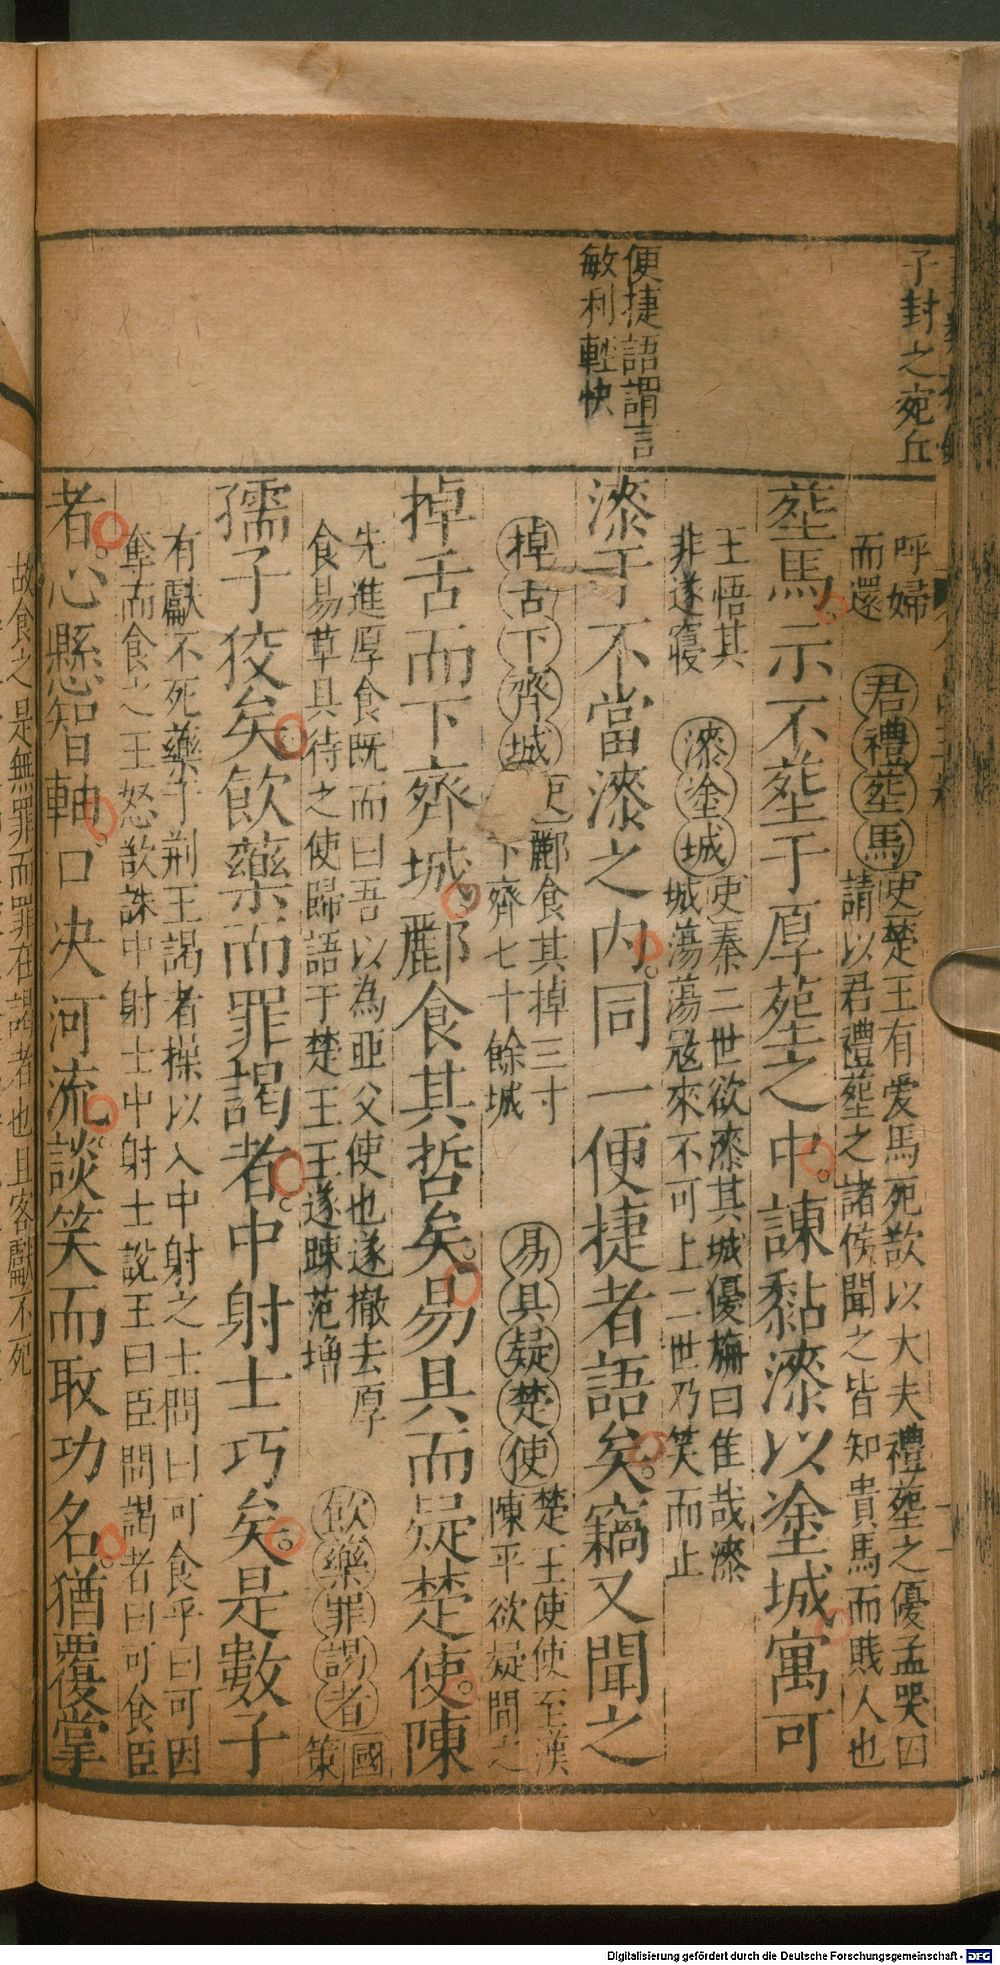 子封之宛丘
便捷語謂言
敏利輕快
呼婦
而還
君禮塟馬
史楚王有爱馬死欲以大夫禮塟之優孟哭曰
請以君禮塟之諸侯聞之皆知貴馬而賤人也
塟馬示不塟于厚塟之中諫黏漆以塗城寓可
王悟其
非遂寢
漆塗城
史秦二世欲漆其城優旃曰佳哉漆
城蕩蕩寇來不可上二世乃笑而止
漆于不當漆之内同一便捷者語矣竊又聞之
掉古下齊城
史酈食其掉三寸
下齊七十餘城
易具疑楚使
楚王使使至漢
陳平欲疑間之
掉舌而下齊城酈食其哲矣易具而疑楚使陳
先進厚食既而曰吾以為亞父使也遂撤去厚
食易草具待之使歸語于楚王王遂踈范增
飲藥罪謁者
國
策
孺子狡矣飲藥而罪謁者中射士巧矣是數子
有獻不死藥于荆王謁者操以入中射之士問曰可食乎曰可因
奪而食之王怒欲誅中射士中射士說王曰臣問謁者曰可食臣
者心懸智軸口决河流談笑而取功名猶覆掌
故食之是無罪而罪在謁者也且客獻不死
Digitalisierung gefördert durch die Deutsche Forschungsgemeinschaft - DFG